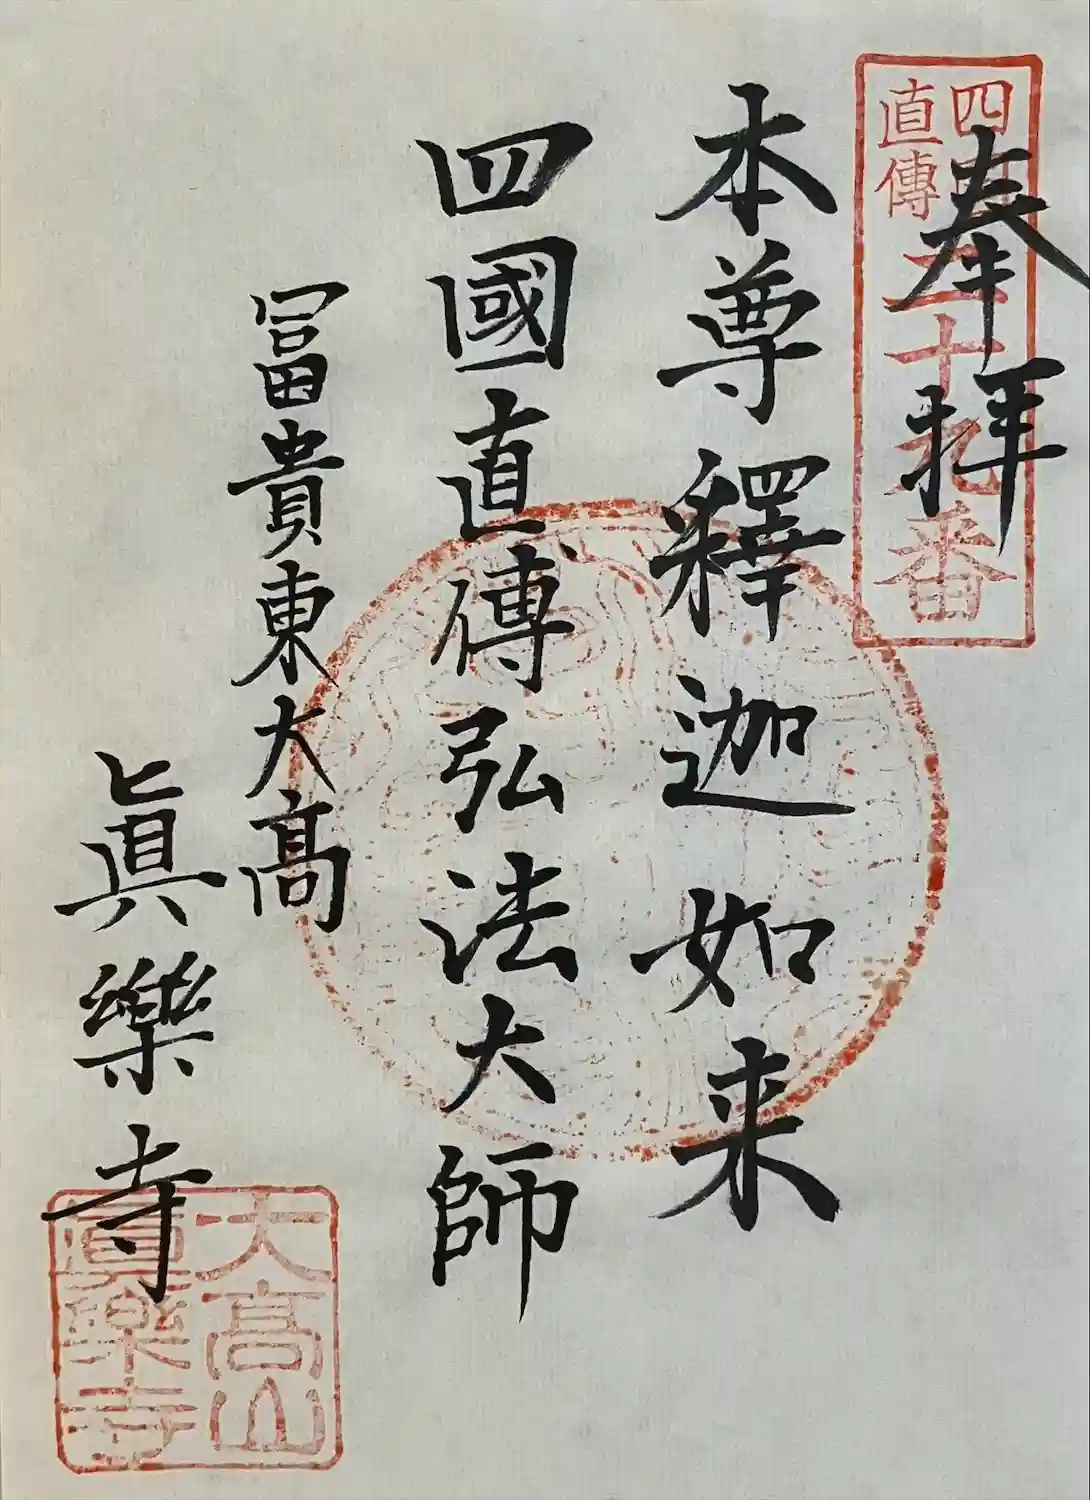 奉拝
四
直傳
十九番
本尊釋迦如来
四國直傳弘法大師
冨貴東大髙
眞樂寺
大高山
眞樂寺